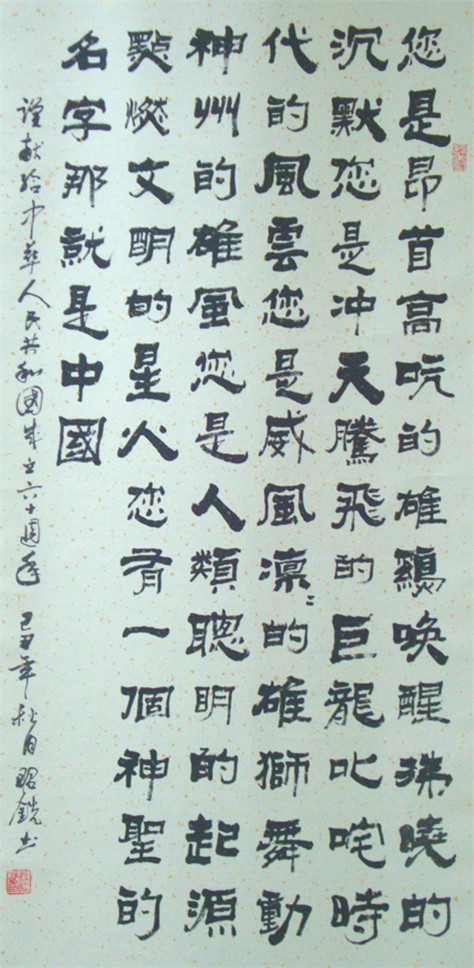 您是昂首高吭的雄鷄唤醒拂曉的
沉默您是冲天騰飛的巨龍叱咤時
代的風雲您是威風凛〻的雄獅舞動
神州的雄風您是人類聰明的起源
點燃文明的星火您有一個神聖的
名字那就是中國
谨献给中華人民共和國成立六十週年 己丑年秋月昭銑书